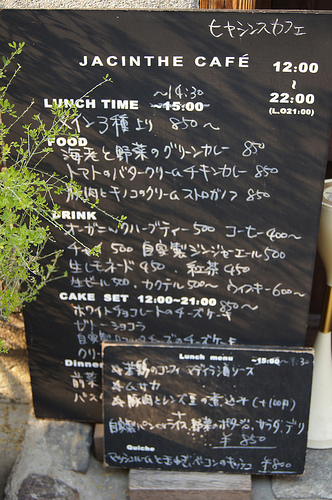 ヒヤシンスカフェ
JACINTHE CAFÉ
12:00
~
22:00
(L.O21:00)
~14:30
LUNCH TIME ~15:00
メイン3種より 850~
FOOD
海老と野菜のグリーンカレー 850
トマトのバタークリームチキンカレー 850
豚肉とキノコのクリームストロガノフ 850
DRINK
オーガニックハーブティー 500 コーヒー 400~
チャイ 500 自家製ジンジャエール 500
生レモネード 450 紅茶 450
生ビール 500 カクテル 500~ ウイスキー 600~
CAKE SET 12:00~21:00 850~
ホワイトチョコレートのチーズケーキ
ショコラ
自家製
Dinner
前菜
パス
Lunch menu ~15:00
若鶏のコンフィ ソース
ムサカ
豚肉とレンズ豆の煮込み (+100円)
自家製パンorライス、野菜のポタージュ、サラダ、デリ
¥850
Quiche
マッシュルームとたまねぎ、ベーコンのキッシュ ¥800